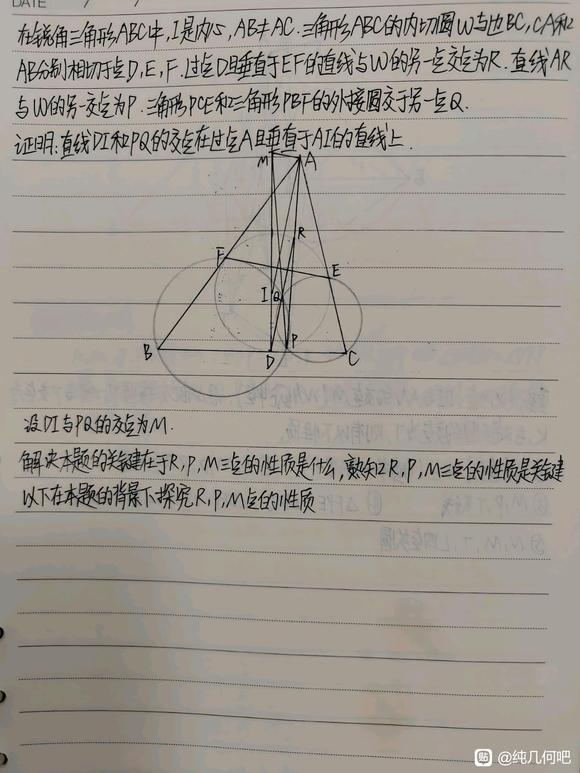 DATE / /
在锐角三角形ABC中,I是内心,AB≠AC.三角形ABC的内切圆W与边BC,CA和
AB分别相切于点D,E,F.过点D且垂直于EF的直线与W的另一点交点为R.直线AR
与W的另一交点为P.三角形PCE和三角形PBF的外接圆交于另一点Q.
证明:直线DI和PQ的交点在过点A且垂直于AI的直线上.
M A
R
F
E
I Q
B D P C
设DI与PQ的交点为M.
解决本题的关键在于R,P,M三点的性质是什么,熟知R,P,M三点的性质是关键
以下在本题的背景下探究R,P,M点的性质
贴 @纯几何吧